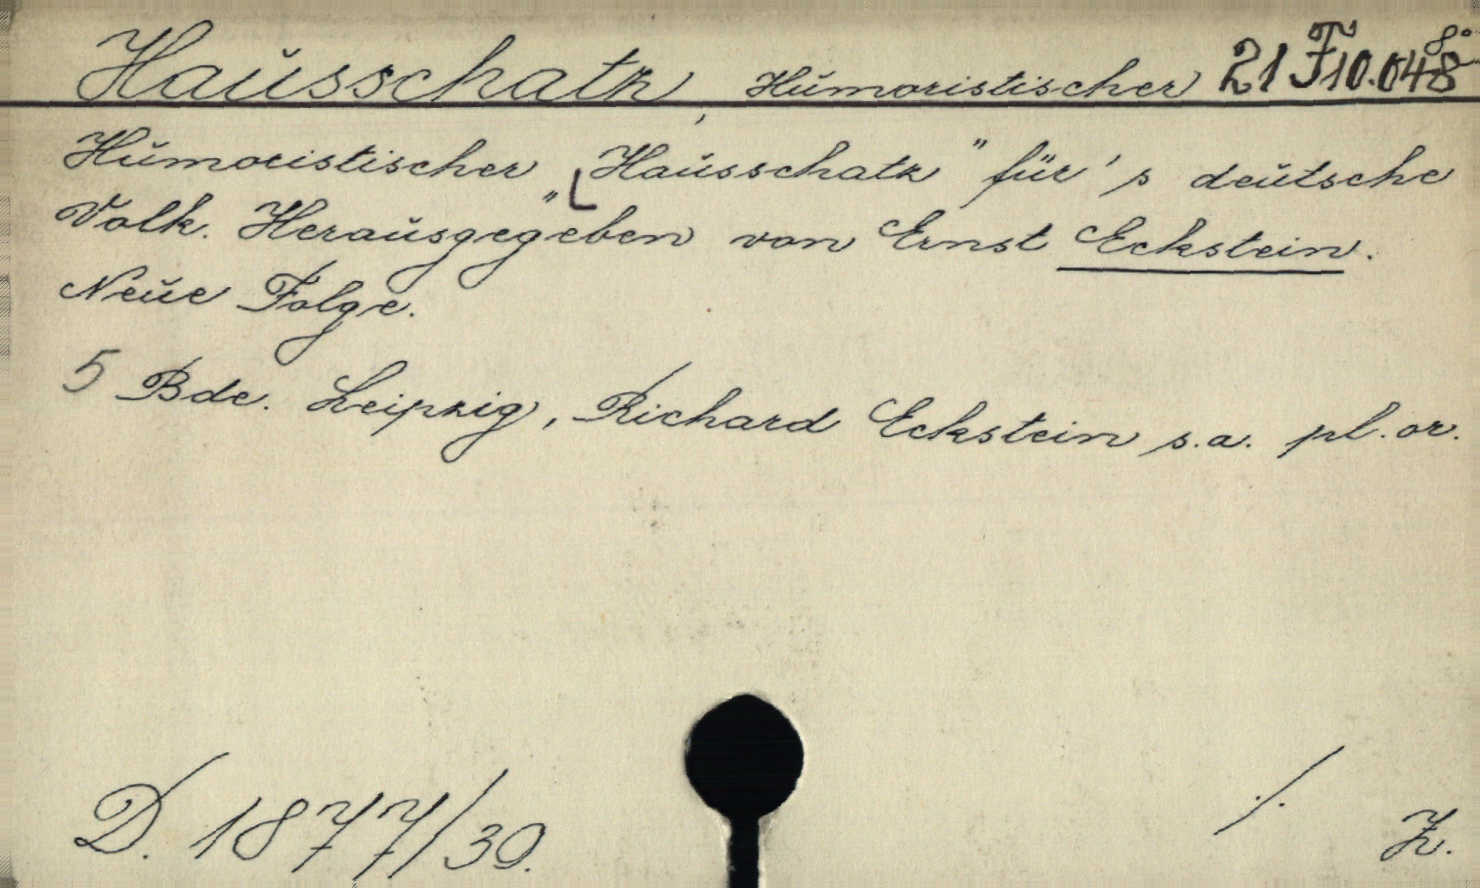 Hausschatz, Humoristischer 21 F 10.048 8°
Humoristischer „Hausschatz" für's deutsche
Volk. Herausgegeben von Ernst Eckstein.
Neue Folge.
5 Bde. Leipzig, Richard Eckstein s.a. pl. or.
D. 1877/30. ·/· Z.